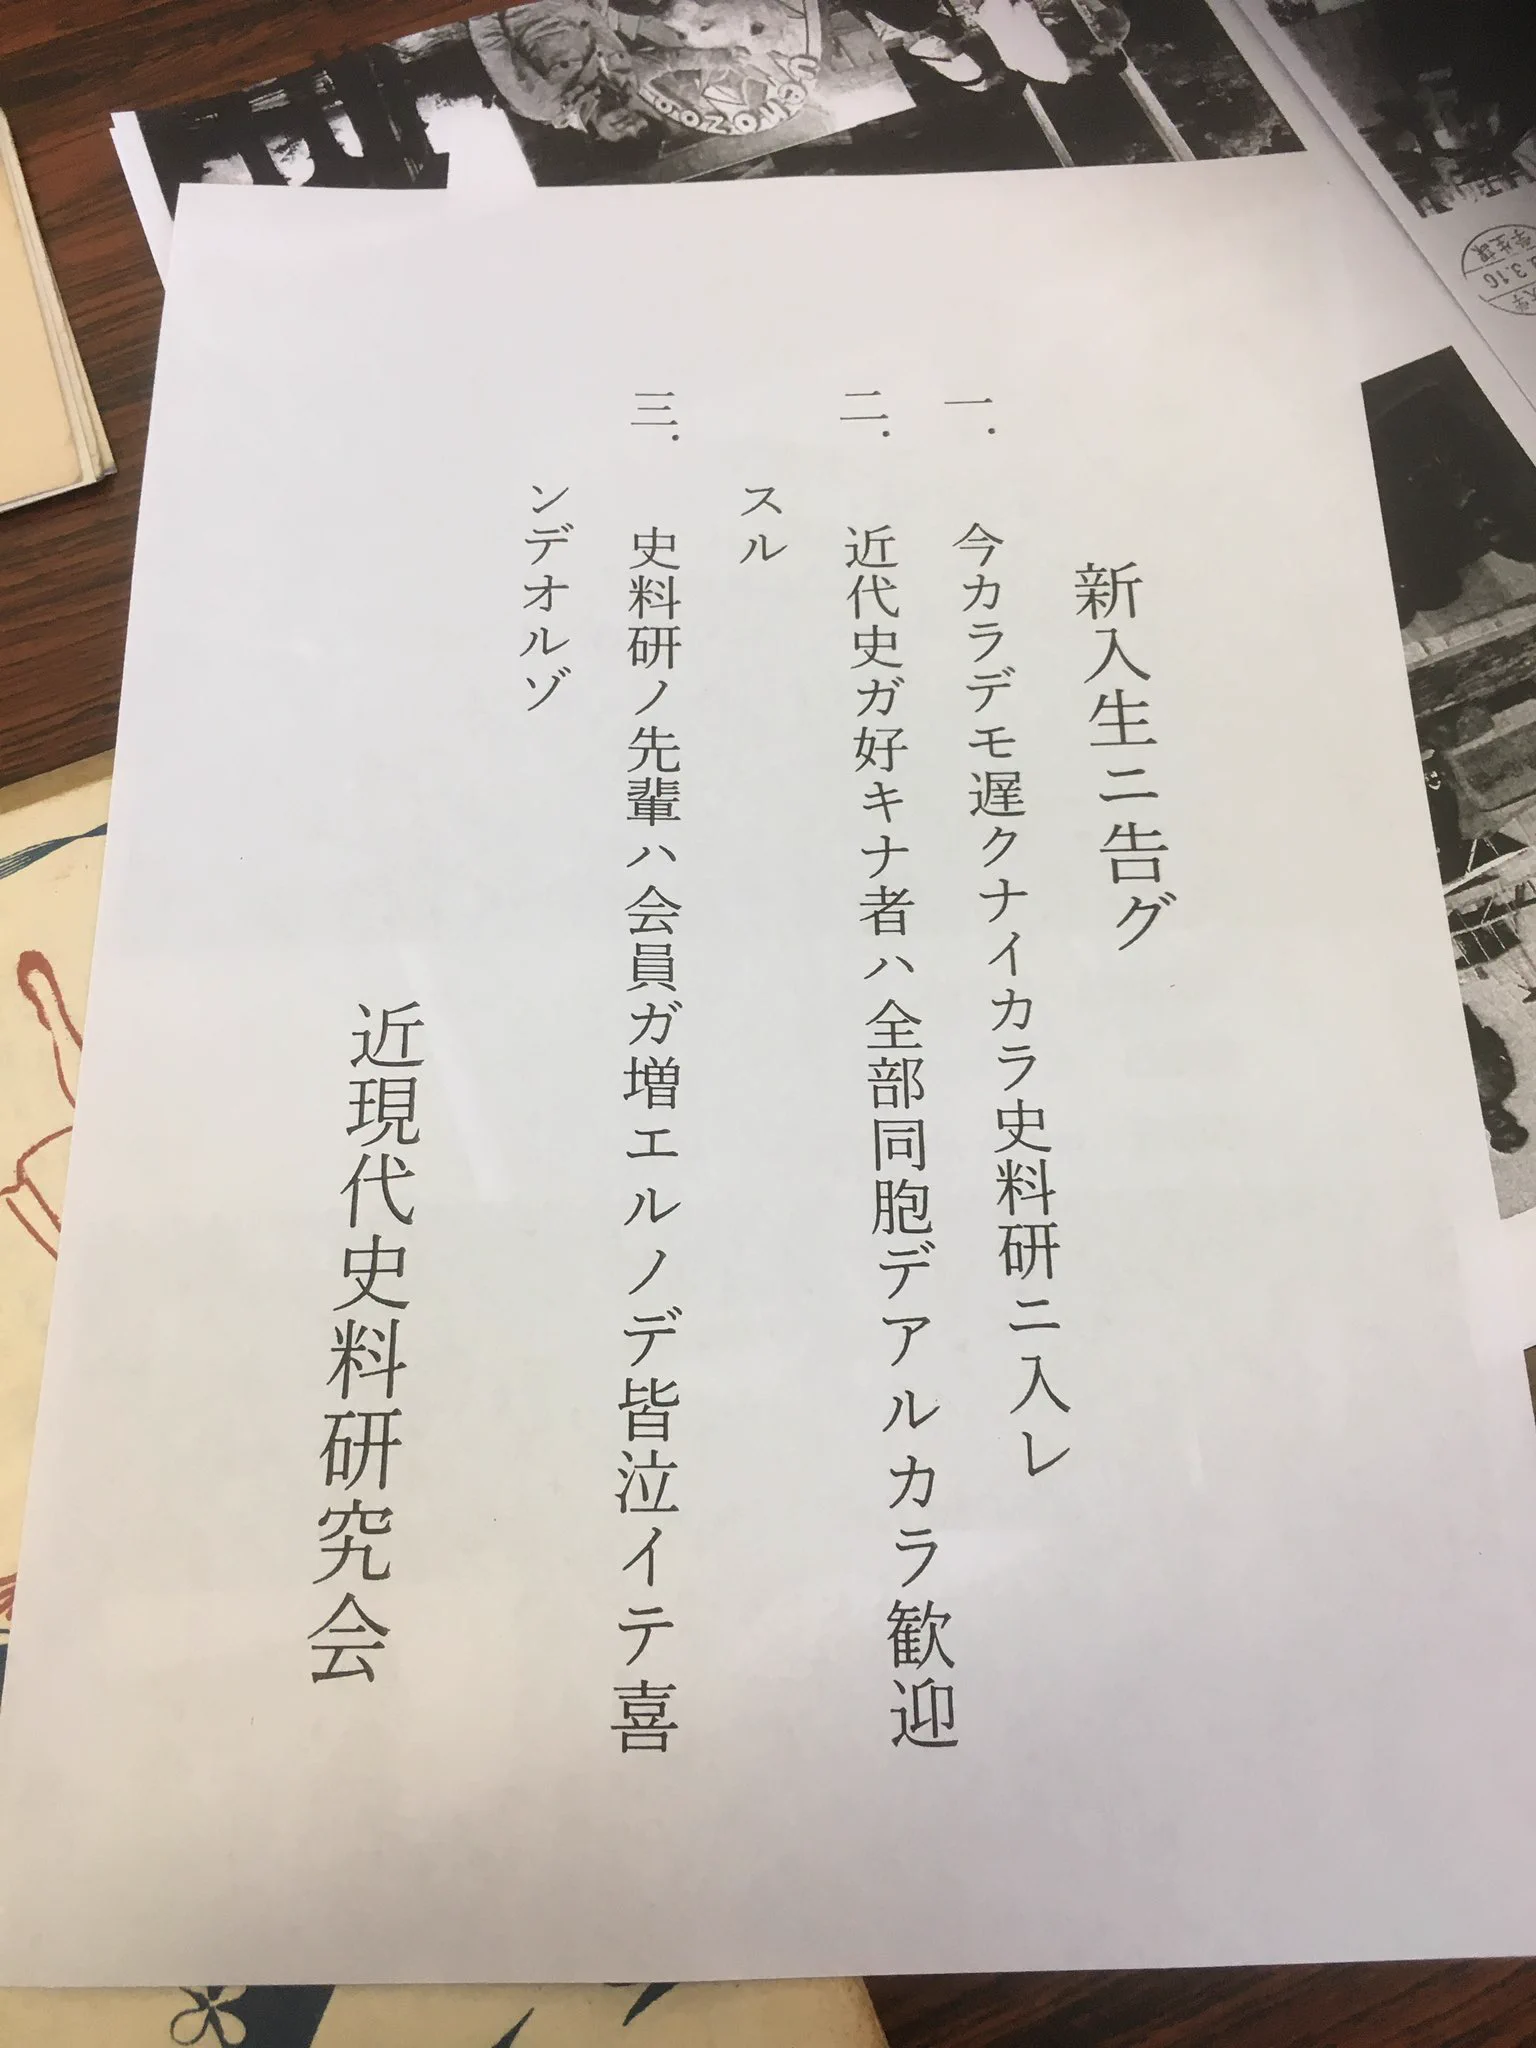 新入生ニ告グ
一. 今カラデモ遅クナイカラ史料研ニ入レ
二. 近代史ガ好キナ者ハ全部同胞デアルカラ歓迎
スル
三. 史料研ノ先輩ハ会員ガ増エルノデ皆泣イテ喜
ンデオルゾ
近現代史料研究会
学生課
3.10